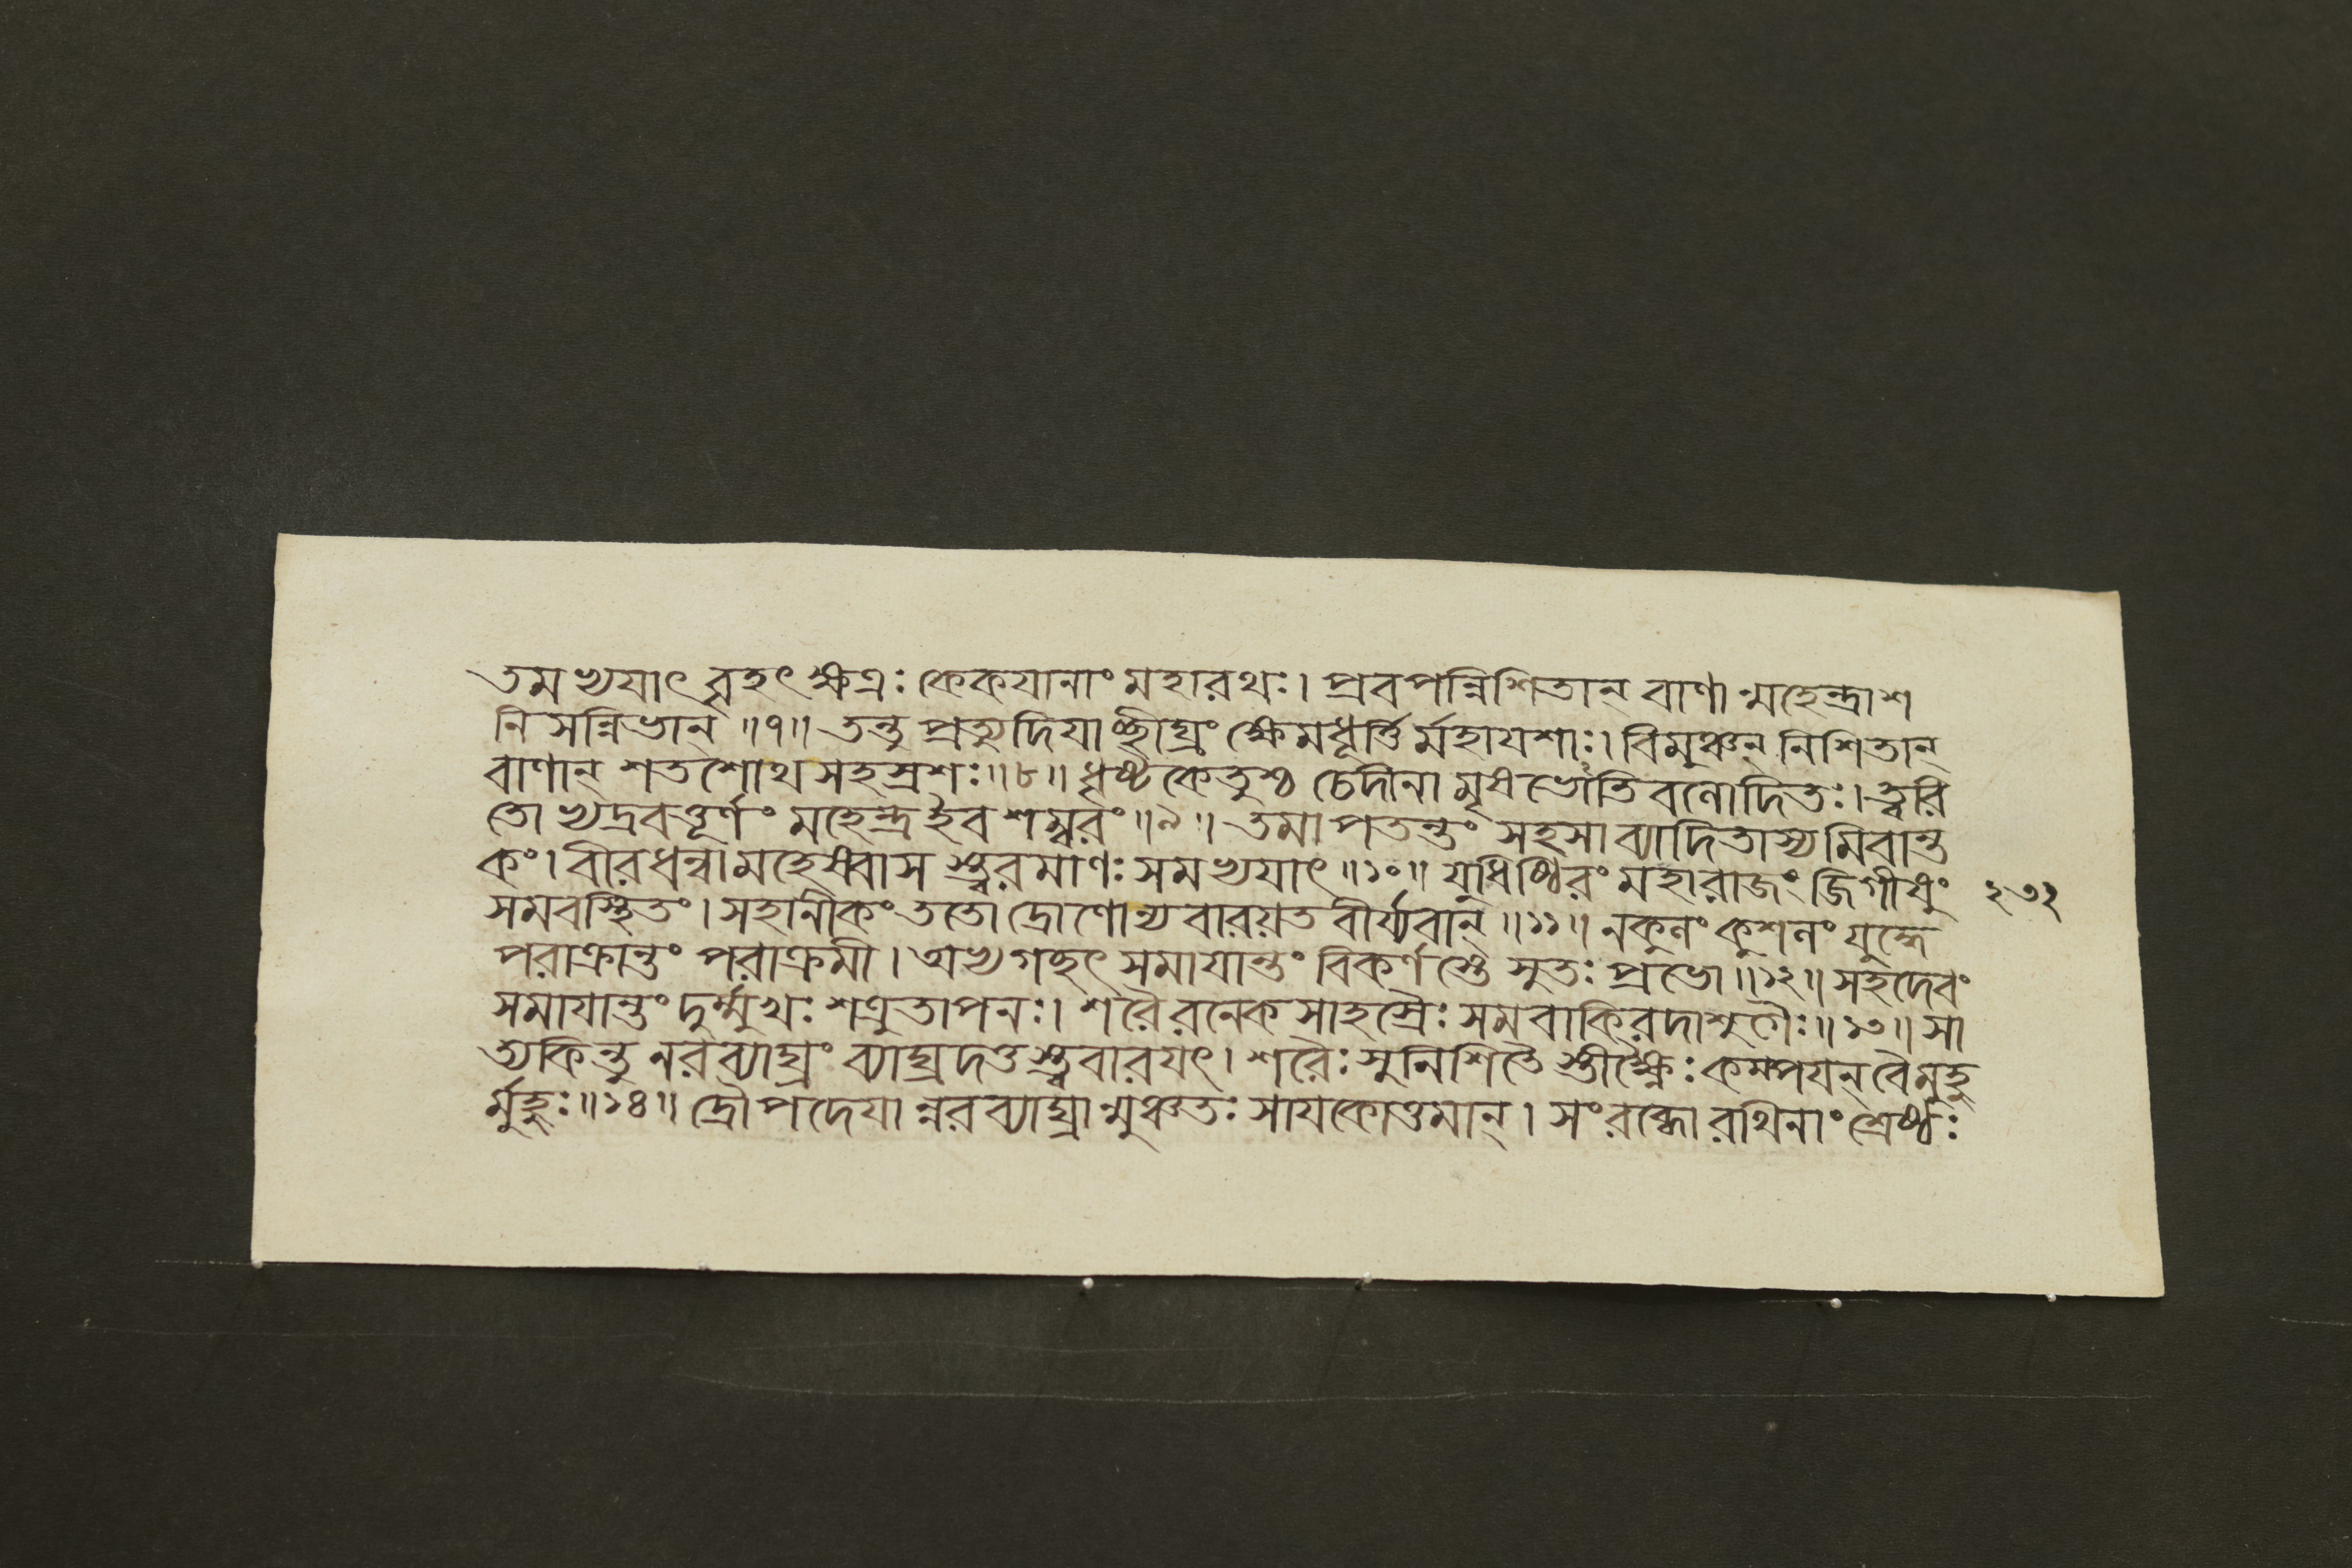 তমভ্যযাৎ বৃহৎক্ষত্রঃ কেকযানাং মহারথঃ। প্রবপন্নিশিতান্ বাণান্মহেন্দ্রাশ
নিসন্নিভান্ ॥৭॥ তন্তু প্রত্যুদিযাচ্ছীঘ্রং ক্ষেমধূর্ত্তির্মহাযশাঃ। বিমুঞ্চন্ নিশিতান্
বাণান্ শতশোথ সহস্রশঃ॥৮॥ ধৃষ্টকেতুশ্চ চেদীনামৃষভোতিবলোদিতঃ।ত্বরি
তোভ্যদ্রবত্তূর্ণং মহেন্দ্রইব শম্বরং॥৯॥ তমাপতন্তং সহসা ব্যাদিতাস্যমিবান্ত
কং। বীরধন্বা মহেষ্বাসস্ত্বরমাণঃ সমভ্যযাৎ॥১০॥ যুধিষ্ঠিরং মহারাজং জিগীষুং
২৩২
সমবস্থিতং। সহানীকং ততো দ্রোণোন্যবারয়ত বীর্য্যবান্॥১১॥ নকুলং কুশলং যুদ্ধে
পরাক্রান্তং পরাক্রমী। অভ্যগচ্ছৎ সমাযান্তং বিকর্ণস্তে সুতঃ প্রভো॥১২॥ সহদেবং
সমাযান্তং দুর্ম্মুখঃ শত্রুতাপনঃ। শরৈরনেকসাহস্রৈঃ সমবাকিরদাশুগৈঃ॥১৩॥ সা
ত্যকিন্তু নরব্যাঘ্রং ব্যাঘ্রদত্তস্ত্ববারযৎ। শরৈঃ সুনিশিতৈস্তীক্ষ্ণৈঃ কম্পযন্ বৈ মুহু
র্মুহুঃ॥১৪॥ দ্রৌপদেযান্নরব্যাঘ্রান্মুঞ্চতঃ সাযকোত্তমান্। সংরব্ধো রথিনাং শ্রেষ্ঠঃ